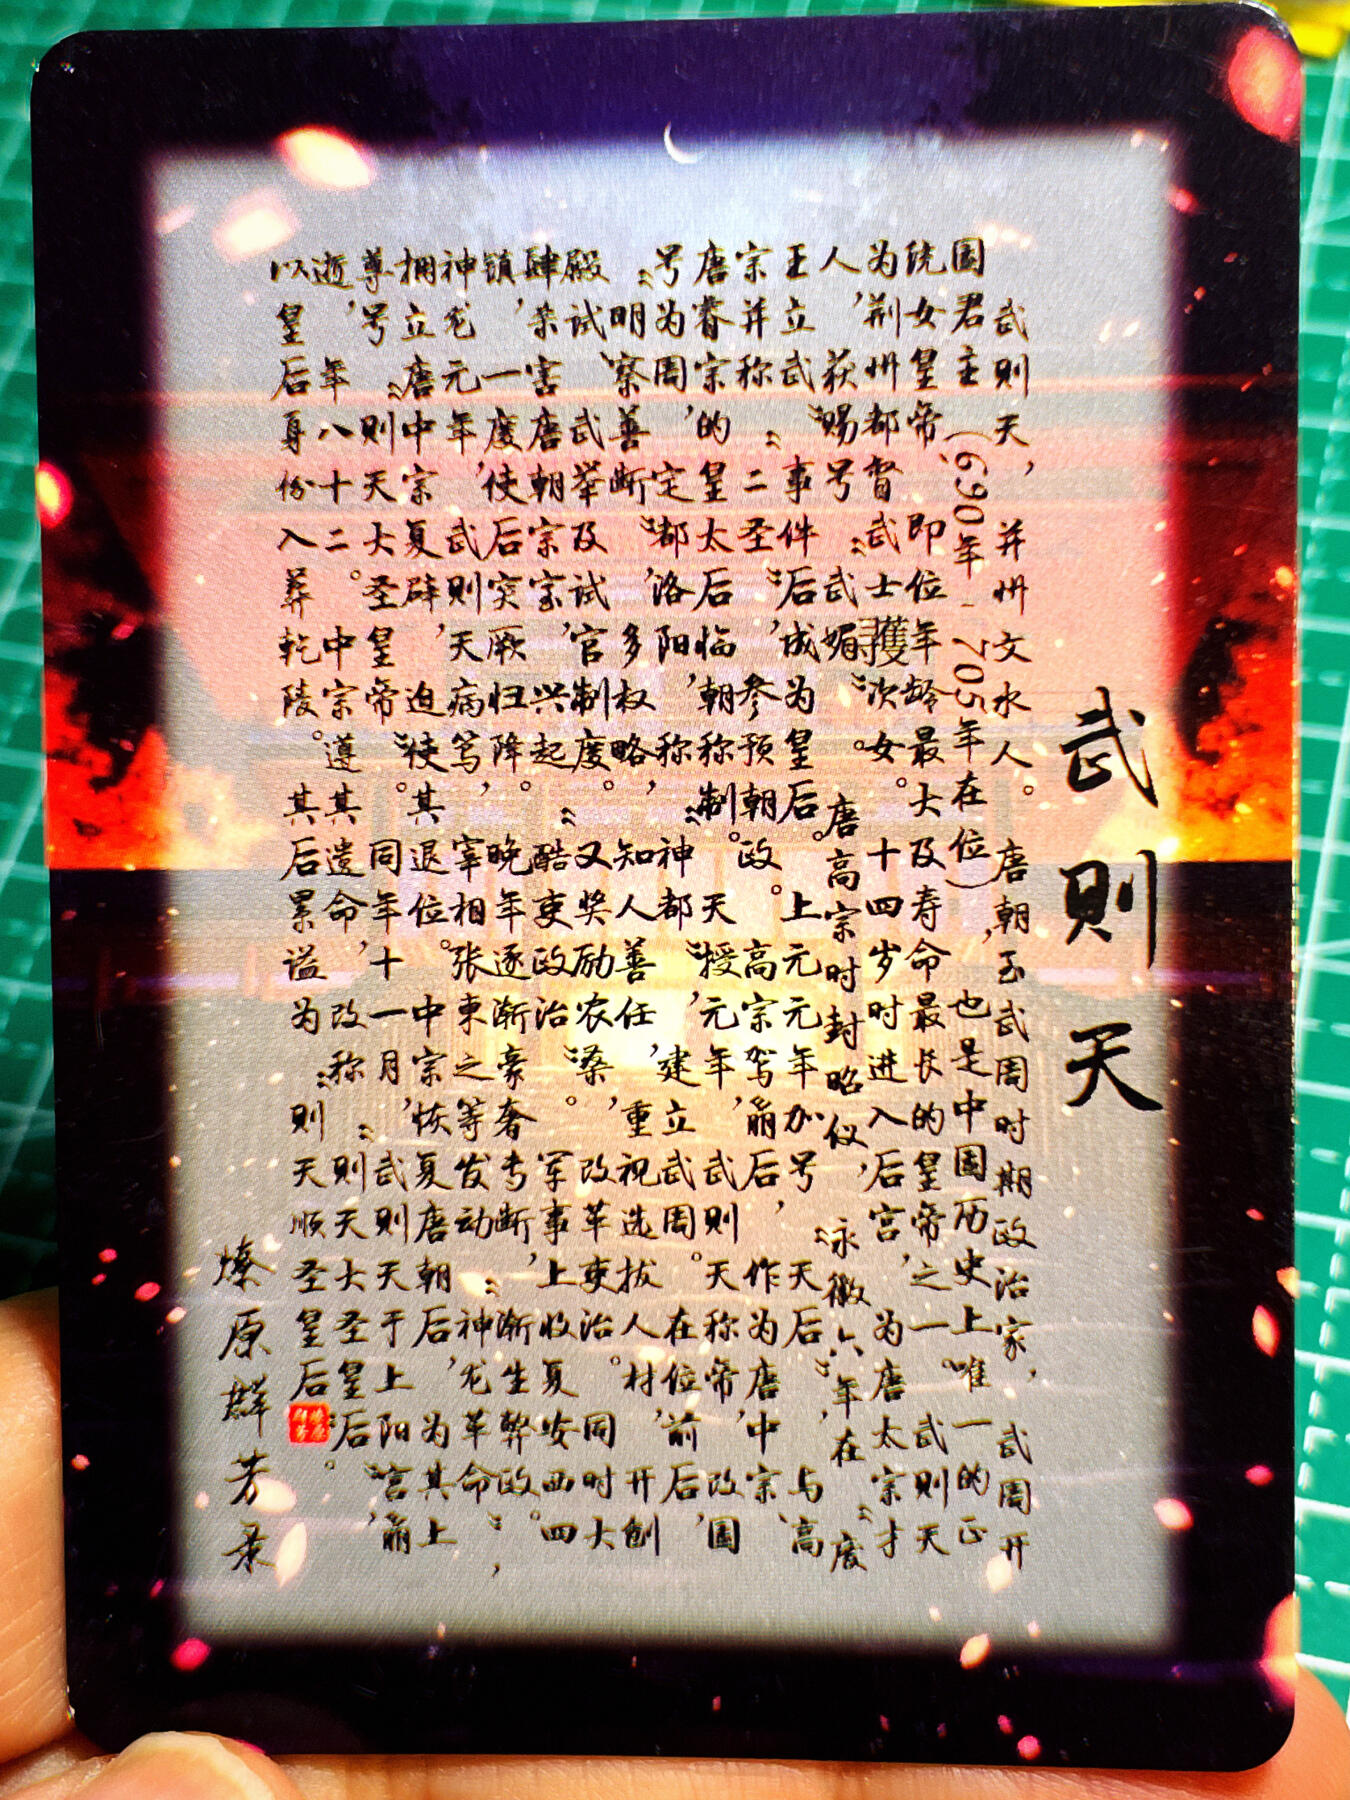 武則天
武则天，并州文水人。唐朝至武周时期政治家，武周开
国君主（690年-705年在位），也是中国历史上唯一的正
统女皇帝、即位年龄最大及寿命最长的皇帝之一。武则天
为荆州都督武士彠次女。十四岁时进入后宫，为唐太宗才
人，获赐号“武媚”。唐高宗时封昭仪，永徽六年，在“废
王立武”事件后，成为皇后。上元元年加号“天后”，与高
宗并称“二圣”，参预朝政。高宗驾崩后，作为唐中宗、
唐睿宗的皇太后临朝称制。天授元年，武则天称帝，改国
号为周，定都洛阳，称“神都”，建立武周。在位前后，
“明察善断”，多权略，知人善任，重视选拔人材，开创
殿试、武举及试官制度。又奖励农桑，改革吏治。同时大
肆杀害唐朝宗室，兴起“酷吏政治”。军事上收复安西四
镇，一度使后突厥归降。晚年逐渐豪奢专断，渐生弊政。
神龙元年，武则天病笃，宰相张柬之等发动“神龙革命”，
拥立唐中宗复辟，迫使其退位。中宗恢复唐朝后，为其上
尊号“则天大圣皇帝”。同年十一月，武则天于上阳宫崩
逝，年八十二。中宗遵其遗命，改称“则天大圣皇后”，
以皇后身份入葬乾陵。其后累谥为“则天顺圣皇后
燎原群芳录